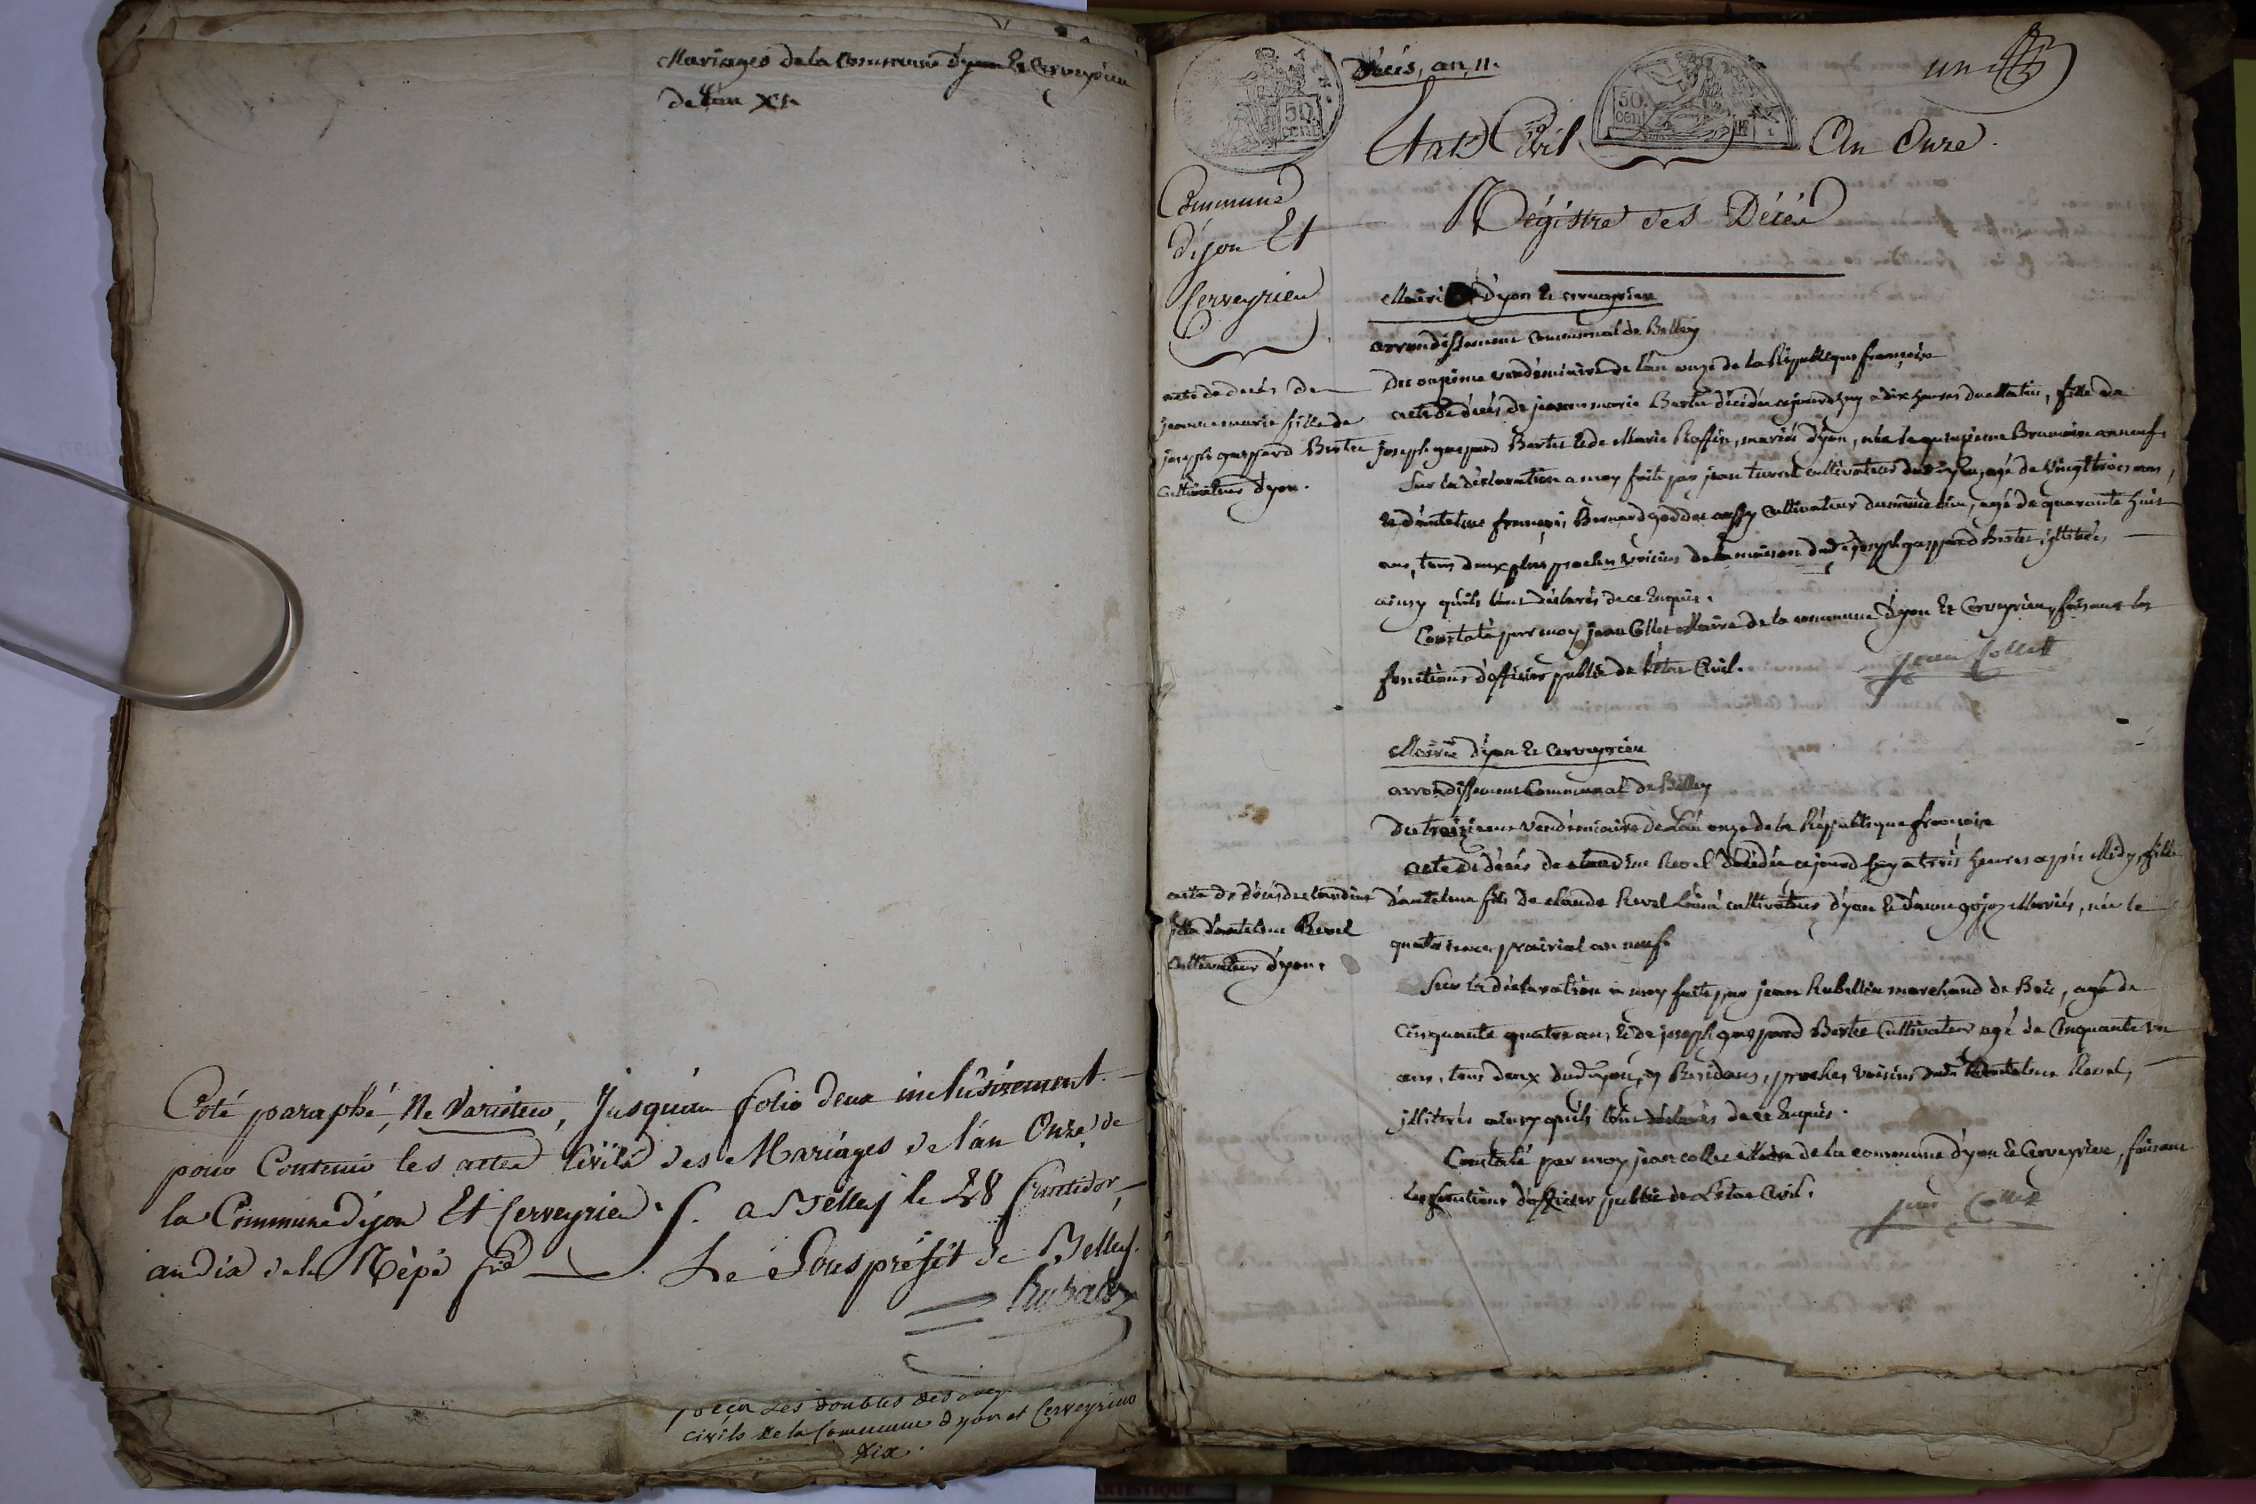 Mariages de la Commune d'yon Et Cerveyrieu
de l'an XI.
Coté paraphé, Ne Varietur, Jusqu'au folio deux inclusivement
pour Contenir les actes Civils des Mariages de l'an Onze de
la Commune d'yon Et Cerveyrieu. f. a Belley le 28 fructidor,
an dix de la Répé frse Le Sous préfet de Belley.
Rubat
les doubles des
civils de la Commune d'yon et Cerveyrieu
dix.
Décès, an, 11.
un
50 cent
50 cen
Etat Civil An Onze.
Régistre des Décès
Commune
d'yon Et
Cerveyrieu
Mairie d'yon Et cerveyrieu
arrondissement communal de Belley
Du onzieme vendémiaire de l'an onze de la République françoise
acte de décès de jeanne marie Bertet décédée cejourdhuy a dix heures du Matin, fille de
joseph gaspard Bertet Et de Marie Roffin, mariés d'yon, née le quinzieme Brumaire an neuf.
acte de decès de
jeanne marie fille de
joseph gaspard Bertet
cultivateur d'yon.
Sur la déclaration a moy faite par jean cultivateur dud. yon, agé de vingt trois ans,
Et d'antelme françois Bernard aussy cultivateur du même lieu, agé de quarante huit
ans, tous deux plus proches voisins de la maison dud. joseph gaspard Bertet, illitérés,
ainsy qu'ils l'ont déclarés de ce Enquis.
Constaté par moy jean Collet Maire de la commune d'yon Et Cerveyrieu, faisant les
fonctions d'officier public de l'état Civil.
jean Collet
Mairie d'yon Et Cerveyrieu
arrondissement Communal de Belley
Du treizieme vendémiaire de L'an onze de la République françoise
acte de décès de claudine Revel décédée cejourdhuy a trois heures après Midy, fille
d'antelme fils de claude Revel L'ainé cultivateur d'yon Et d'anne gojoz Mariés, née le
quatrieme prairial an neuf.
acte de décès de claudine
fille d'antelme Revel
cultivateur d'yon.
Sur la déclaration a moy faite par jean Rubellin marchand de Bois, agé de
cinquante quatre ans, Et de joseph gaspard Bertet Cultivateur agé de Cinquante un
ans, tous deux dud. yon, y Residans, proches voisins dud. antelme Revel,
illitérés ainsy qu'ils l'ont déclarés de ce Enquis.
Constaté par moy jean collet Maire de la commune d'yon Et Cerveyrieu, faisant
Les fonctions d'officier public de L'état Civil.
jean Collet